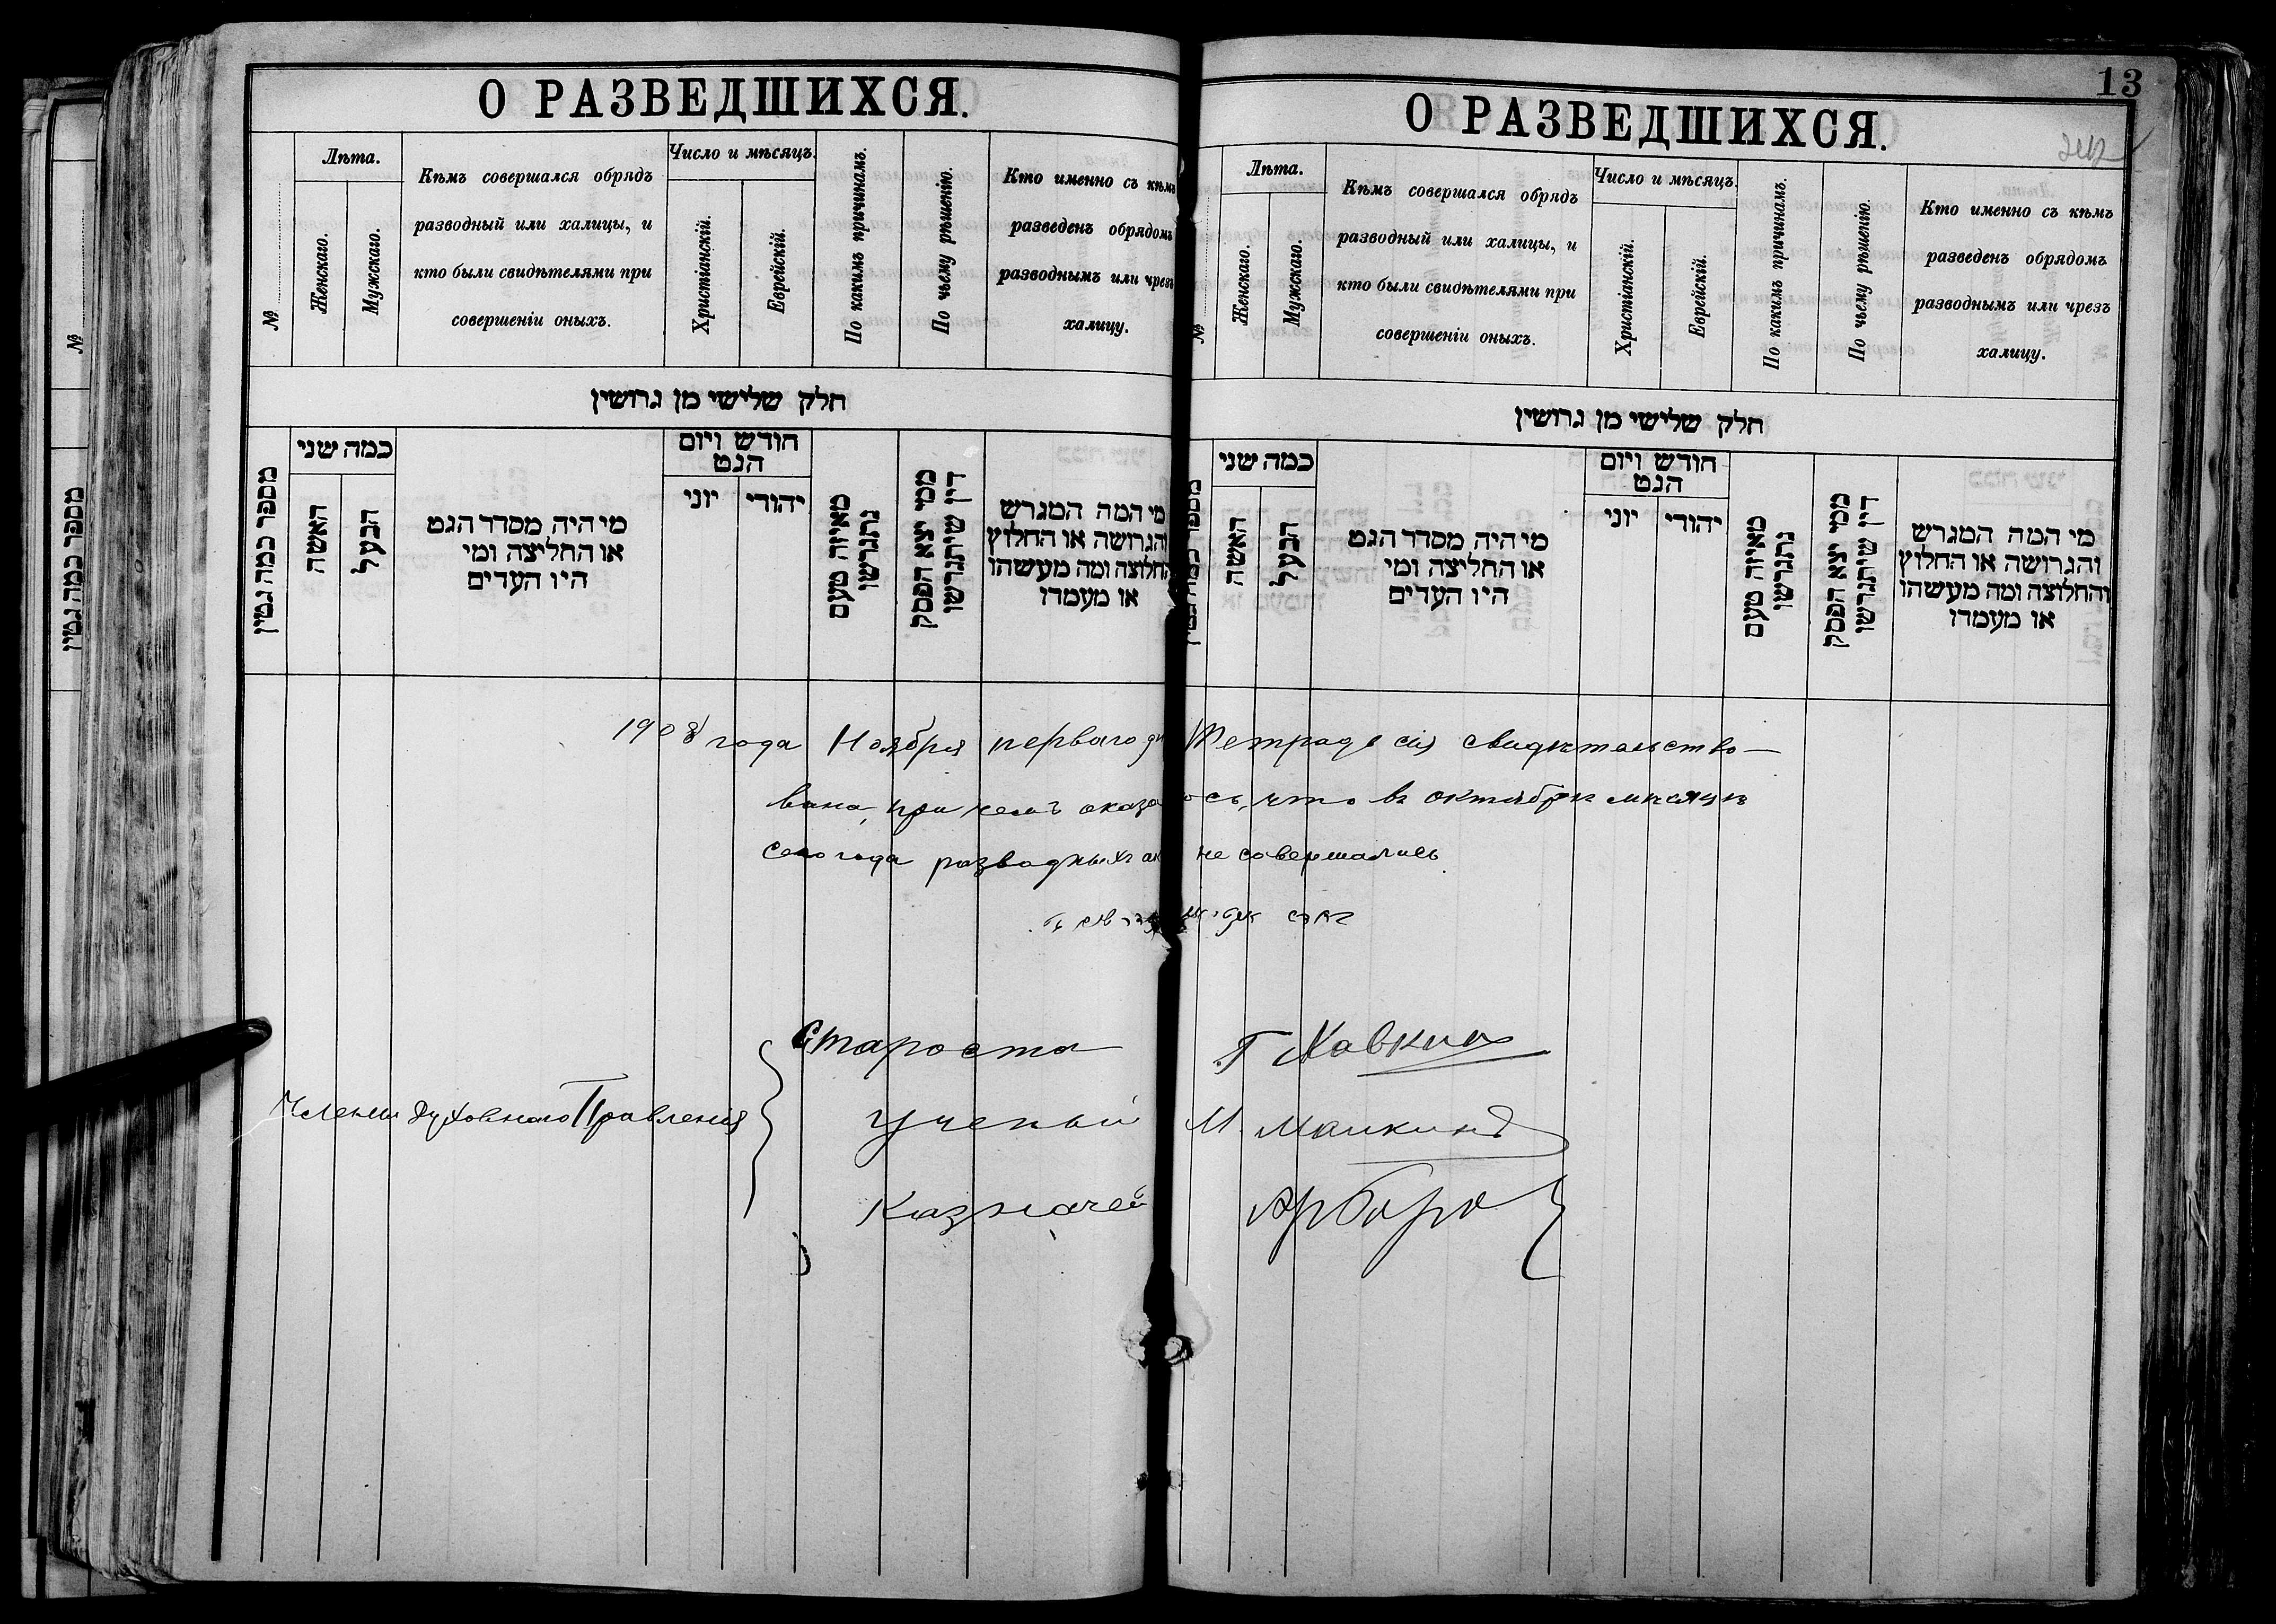 О РАЗВЕДШИХСЯ.
№
Лѣта.
Женскаго.
Мужскаго.
Кѣмъ совершался обрядъ
разводный или халицы, и
кто были свидѣтелями при
совершеніи оныхъ.
Число и мѣсяцъ.
Христіанскій.
Еврейскій.
По какимъ причинамъ.
По чьему рѣшенію.
Кто именно съ кѣмъ
разведенъ обрядомъ
разводнымъ или чрезъ
халицу.
חלק שלישי מן גרושין
מספר כמה גטין
כמה שני
האשה
הבעל
מי היה מסדר הגט
או החליצה ומי
היו העדים
חודש ויום
הגט
יוני
יהודי
מאיזה טעם
נתגרשו
ממי יצא הפסק
דין שיתגרשו
מי המה המגרש
והגרושה או החלוץ
והחלוצה ומה מעשהו
או מעמדו
13
О РАЗВЕДШИХСЯ.
№
Лѣта.
Женскаго.
Мужскаго.
Кѣмъ совершался обрядъ
разводный или халицы, и
кто были свидѣтелями при
совершеніи оныхъ.
Число и мѣсяцъ.
Христіанскій.
Еврейскій.
По какимъ причинамъ.
По чьему рѣшенію.
Кто именно съ кѣмъ
разведенъ обрядомъ
разводнымъ или чрезъ
халицу.
חלק שלישי מן גרושין
מספר כמה גטין
כמה שני
האשה
הבעל
מי היה מסדר הגט
או החליצה ומי
היו העדים
חודש ויום
הגט
יוני
יהודי
מאיזה טעם
נתגרשו
ממי יצא הפסק
דין שיתגרשו
מי המה המגרש
והגרושה או החלוץ
והחלוצה ומה מעשהו
או מעמדו
№
מספר כמה גטין
1908 года Ноября перваго дн Тетрадь сія свидѣтельство-
вана, при чемъ оказалось, что въ октябрѣ мѣсяцѣ
сего года разводныхъ ак не совершались.
Члены Духовнаго Правленія
Староста Г Хавкин
Ученый М. Маикинъ
Казначей